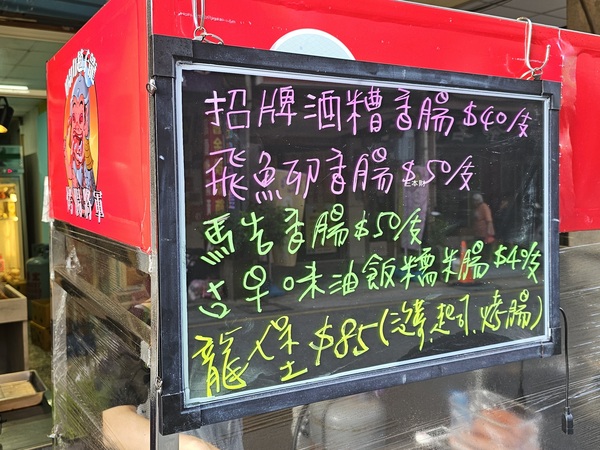 招牌酒糟香腸$40/支
飛魚卵香腸$50/支
馬告香腸$50/支
古早味油飯糯米腸$40/支
龍堡$85(漢,起司,烤腸)